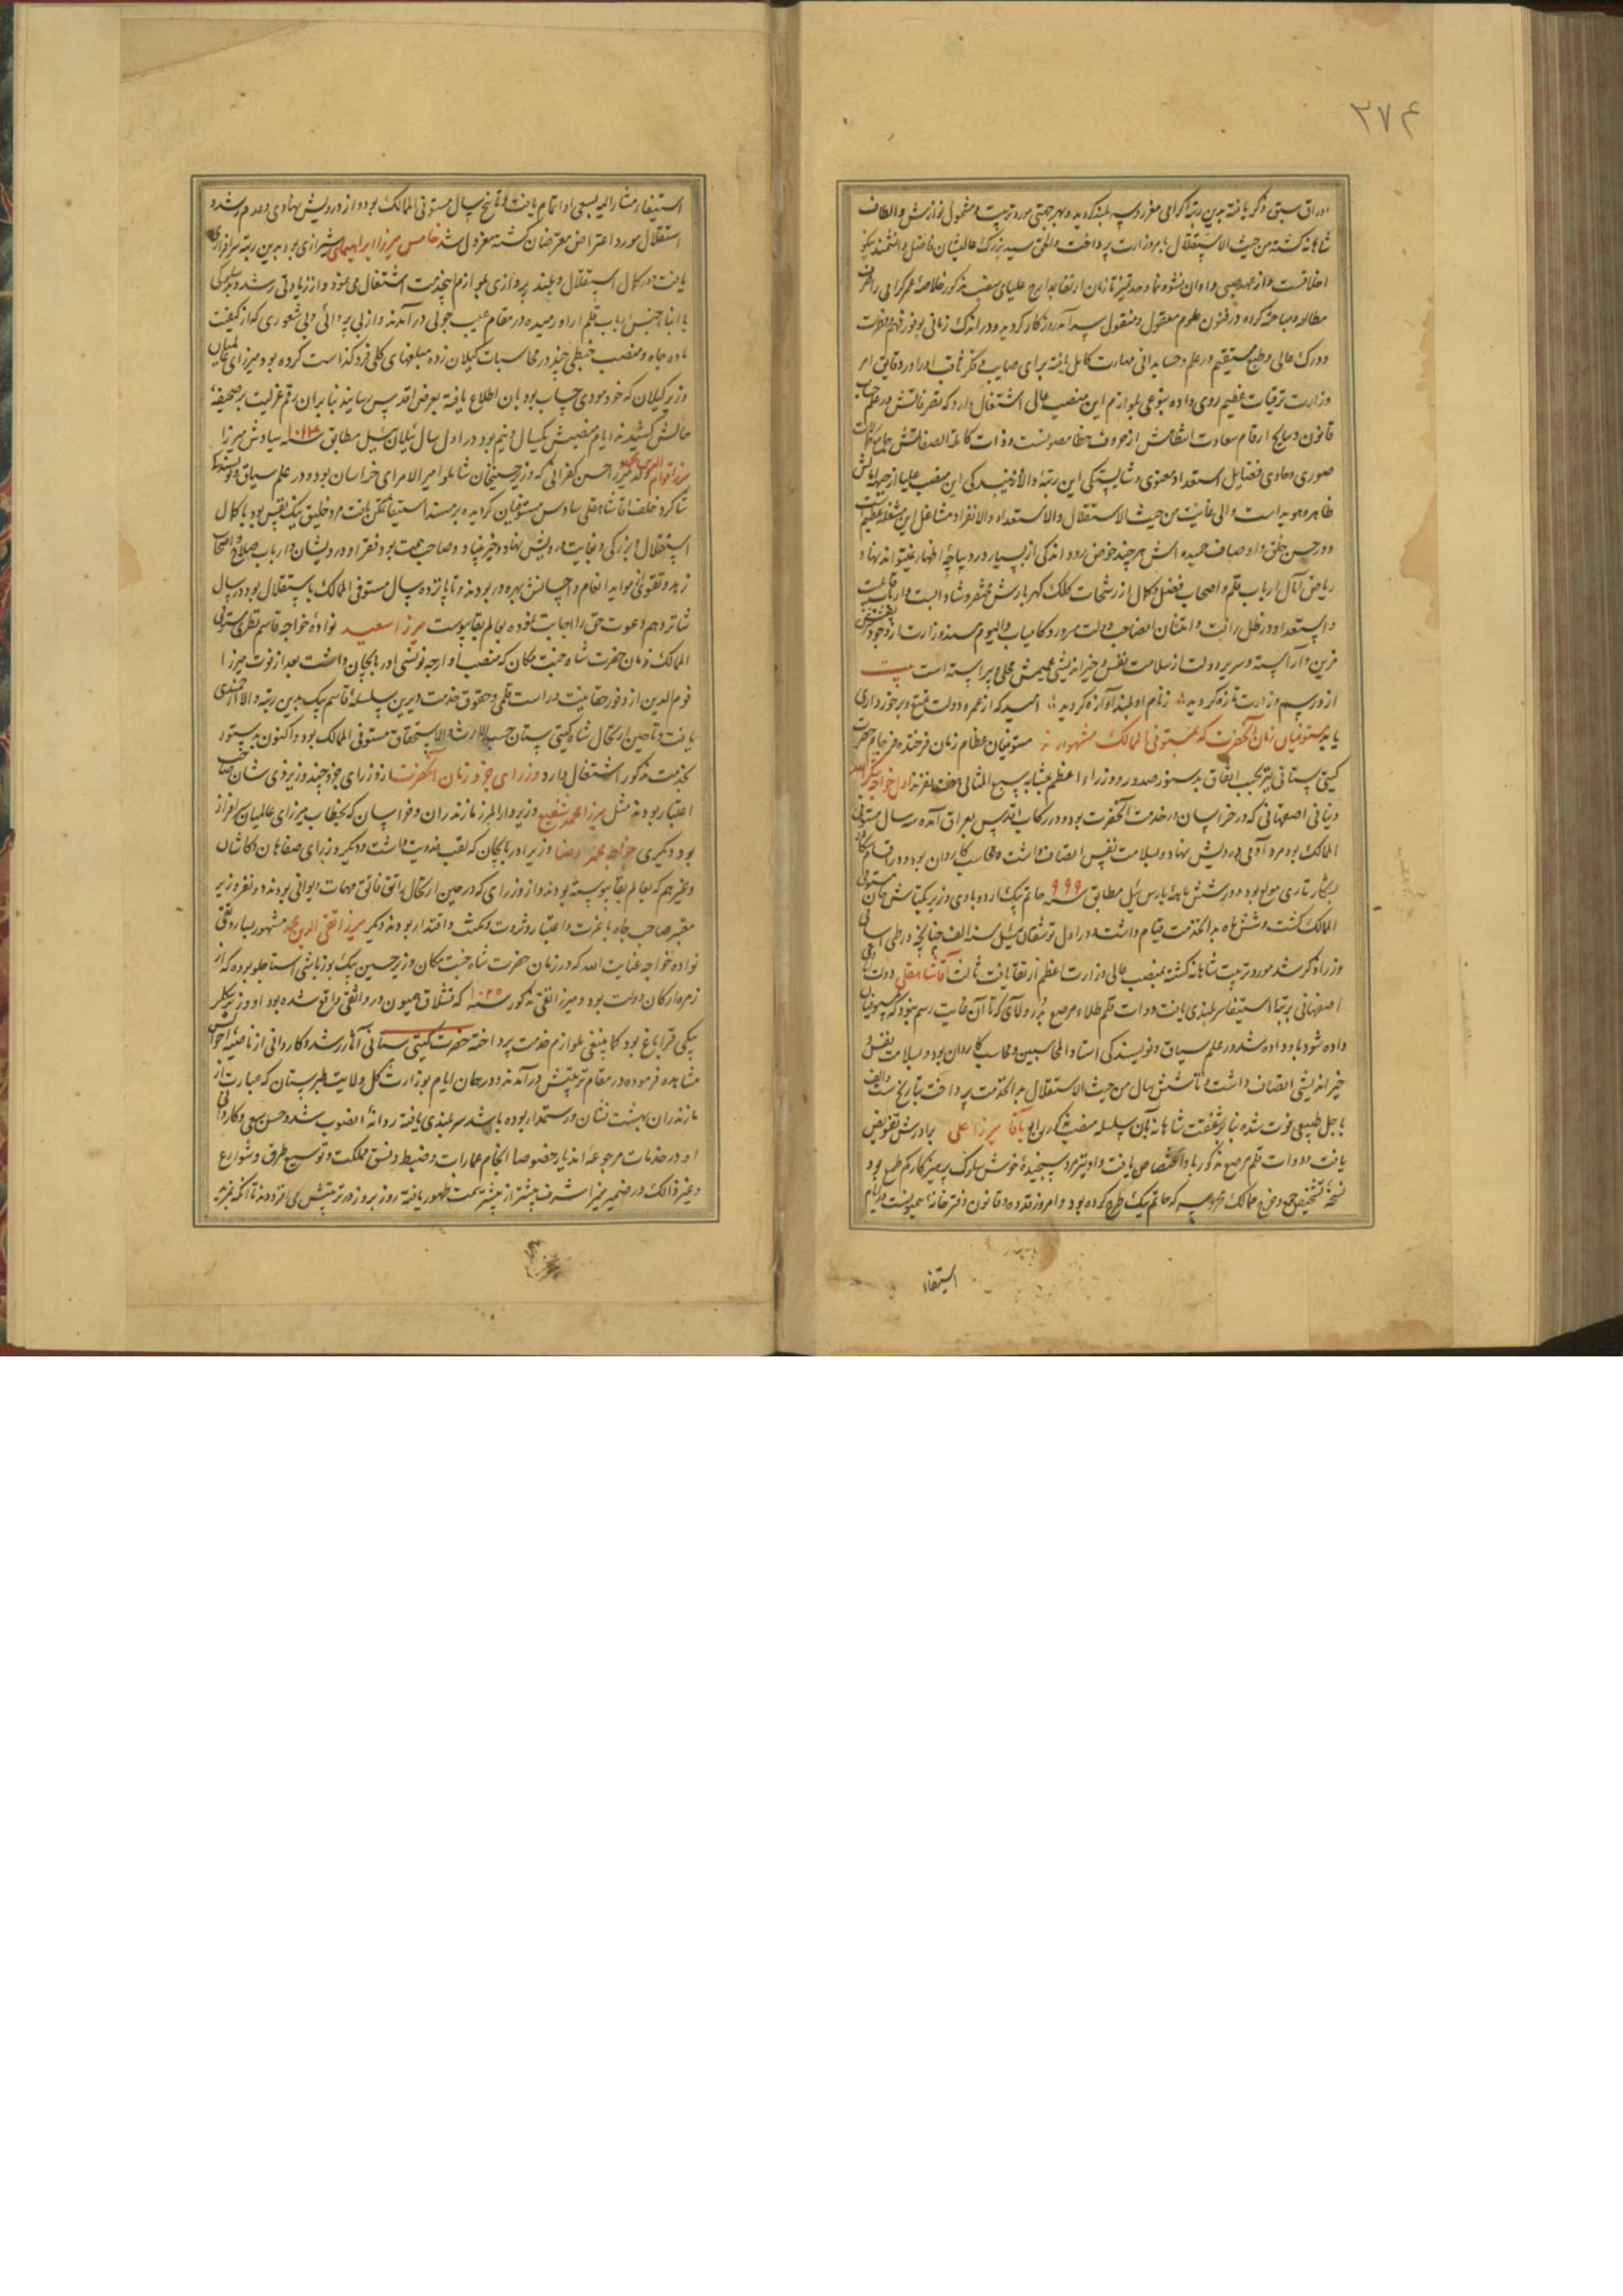 ۳۷۴
اوراق سبق ذکر یافته بدین رتبه گرامی معزز و سربلند گردید و بهر جهتی مورد تربیت و مشمول نوازش و الطاف
شاهانه گشته من حیث الاستقلال بامر وزارت پرداخت والحق سید بزرگ عالیشان فاضل دانشمند نیکو
اخلاقست و از عهد صبی و اوان نشو و نما و حد تمیز تا زمان ارتقا بمدارج علیای منصب مذکور خلاصه عمر گرامی را صرف
مطالعه و مباحثه کرده در فنون علوم معقول و منقول سرآمد روزگار گردیده و در اندک زمانی بوفور فهم و فطرت
و درک عالی و طبع مستقیم در علم و حسابدانی مهارت کامل یافته برای صایب و فکر ثاقب او را در دقایق امر
وزارت ترقیات عظیم روی داده بنوعی بلوازم این منصب عالی اشتغال دارد که تصرفاتش در علم حساب
قانون و نتایج ارقام سعادت انتظامش از حروف خطا مصونست و ذات کامله الصفاتش جامع کمالات
صوری و حاوی فضایل استعداد معنوی و شایستگی این رتبه والا و زیبندگی این منصب علیا از جبهه احوالش
ظاهر و هویداست و الی غایت من حیث الاستقلال والاستعداد والانفراد مشاغل این مشغله عظیم است
و در حسن خلق و اوصاف حمیده اش هر چند خوض رود اندکی از بسیار در دیباچه اظهار نمیتواند نهاد
ریاض آمال ارباب قلم و اصحاب فضل و کمال از رشحات کلک گهربارش مخضر و شادابست و ارباب قابلیت
و استعداد در ظل رافت و امتنان آنصاحب دولت مسرور و کامیاب والیوم مسند وزارت از وجود
مزین و آراسته و سریر دولت از سلامت نفس و خیراندیشی عمیمش محلی و پیراسته است بیت
از و رسم وزارت تازه گردید ز نام او بلند آوازه گردید امید که از عمر و دولت تمتع و برخورداری
یابد مستوفیان زمان آنحضرت که بمستوفی الممالک مشهورند مستوفیان عظام زمان فرخنده فرجام حضرت
گیتی ستانی نیز بحسب اتفاق بدستور صدور و وزراء اعظم بمثابه سبع المثانی هفت نفرند اول خواجه شکرالله
اصفهانی که در خراسان در خدمت آنحضرت بود و در رکاب اقدس بعراق آمده سه سال مستوفی
الممالک بود مرد آدمی درویش نهاد و بسلامت نفس اتصاف داشت و محاسب کاردان بود و در اقسام
بسیار تاری مولع بود و در شش ماهه بارس ئیل مطابق سنه ۹۹۹ حاتم بیک اردوبادی وزیر یکتاش خان مستوفی
الممالک گشت و شش ماه بدان خدمت قیام داشت و در اول توشقان ئیل سنه الف چنانچه در طی اسامی
وزرا ذکر شد مورد تربیت شاهانه گشته بمنصب عالی وزارت اعظم ارتقا یافت ثالث آقا شاه علی دولت آبادی
اصفهانی برتبه استیفا سربلندی یافت و دوات قلم طلاء مرصع بدر و لآلی که تا آن غایت رسم نبود که بمستوفیان
داده شود باو داده شد و در علم سیاق و نویسندگی استاد المحاسبین و محاسب کاردان بود و بسلامت نفس و
خیراندیشی اتصاف داشت و تا شش سال من حیث الاستقلال بدان خدمت پرداخت بتاریخ
باجل طبیعی فوت شده بنابر شفقت شاهانه بآن سلسله منصب مذکور رابع بآقا میرزا علی برادرش تفویض
یافت و دوات قلم مرصع مذکور باو اختصاص یافت و او نیز مرد سنجیده خوش سلوک پرهیزکار کم طمع بود
نسخه تشخیص جمع و خرج ممالک محروسه که حاتم بیک طرح کرده بود و امروز قدوه و قانون دفترخانه همیونست در ایام
استیفاء
استیفاء مشار الیه بسعی او اتمام یافت و تا پنج سال مستوفی الممالک بود و از درویش نهادی و عدم رشد و
استقلال مورد اعتراض معترضان گشته معزول شد خامس میرزا ابراهیمای شیرازی بود بدین رتبه سرافرازی
یافت و در کمال استقلال و بلند پروازی بلوازم اینخدمت اشتغال می نمود و از زیادتی رشد و
با ابناء جنس ارباب قلم از او رمیده در مقام عیب جوئی درآمدند و از بی پروائی و بی شعوری که از کیفیت
باده جاه و منصب خبطی چند در محاسبات گیلان زده مبلغهای کلی فروگذاشت کرده بود میرزای عالمیان
وزیر گیلان که خود مودی حساب بود بآن اطلاع یافته بعرض اقدس رسانید بنابران رقم عزلت بر صحیفه
حالش کشیدند ایام منصبش یکسال و نیم بود در اول سال ئیلان ئیل مطابق سنه سادس میرزا
میرزا قوام الدین محمد ولد میرزا حسن کفرانی که وزیر حسینخان شاملو امیر الامرای خراسان بود و در علم سیاق و نویسندگی
شاگرد خلف آقا شاه علی سادس مستوفیان گردیده بر مسند استیفا تمکن یافت مرد خلیق نیک نفس بود با کمال
استقلال و بزرگی و بغایت درویش نهاد و خیر بنیاد و صاحب همت بود فقرا و درویشان و ارباب صلاح و اصحاب
زهد و تقوی از مواید انعام و احسانش بهره ور بودند و تا پانزده سال مستوفی الممالک باستقلال بود و در سال
شانزدهم دعوت حق را اجابت نموده بعالم بقا پیوست میرزا سعید نواده خواجه قاسم نطنزی مستوفی
الممالک زمان حضرت شاه جنت مکان که منصب اوارجه نویسی آذربایجان داشت بعد از فوت میرزا
قوام الدین از وفور حقانیت و راست قلمی و حقوق خدمت دیرین سلسله قاسم بیک بدین رتبه والا ارجمندی
یافت و تا حین ارتحال شاه گیتی ستان حسب الارث والاستحقاق مستوفی الممالک بود و اکنون بدستور
بخدمت مذکور اشتغال دارد وزرای جزو زمان آنحضرت از وزرای جزو چند وزیر ذی شان صاحب
اعتبار بودند مثل میرزا محمد شفیع وزیر دارالمرز مازندران و خراسان که بخطاب میرزای عالمیان سرافراز
بود دیگری خواجه محمد رضا وزیر آذربایجان که لقب فدویت داشت و دیگر وزرای صفاهان و کاشان
و غیرهم که بعالم بقا پیوسته بودند و از وزرای که در حین ارتحال راتق فاتق مهمات دیوانی بودند دو نفر وزیر
معتبر صاحب جاه با عزت و اعتبار و ثروت و مکنت و اقتدار بودند دیگر میرزا تقی الدین محمد مشهور بساروتقی
نواده خواجه عنایت الله که در زمان حضرت شاه جنت مکان وزیر حسین بیک یوزباشی استاجلو بوده که از
زمره ارکان دولت بود و میرزا تقی مذکور سنه ۱۰۲۵ که قشلاق همیون در واقع شده بود او وزیر بیگلر
بیگی قراباغ بود کما ینبغی بلوازم خدمت پرداخته حضرت گیتی ستانی آثار رشد و کاردانی از ناصیه احوالش
مشاهده فرموده در مقام تربیتش درآمدند و در همان ایام بوزارت کل ولایت طبرستان که عبارت از
مازندران بهشت نشان و رستمدار بوده باشد سربلندی یافته روانه آنصوب شد و حسن سعی و کاردانی
او در خدمات مرجوعه آن دیار خصوصا انجام عمارات و ضبط و نسق مملکت و توسیع طرق و شوارع
و غیر ذالک در ضمیر منیر اشرف بیشتر از پیشتر سمت ظهور یافته روز بروز در تربیتش می افزودند تا آنکه